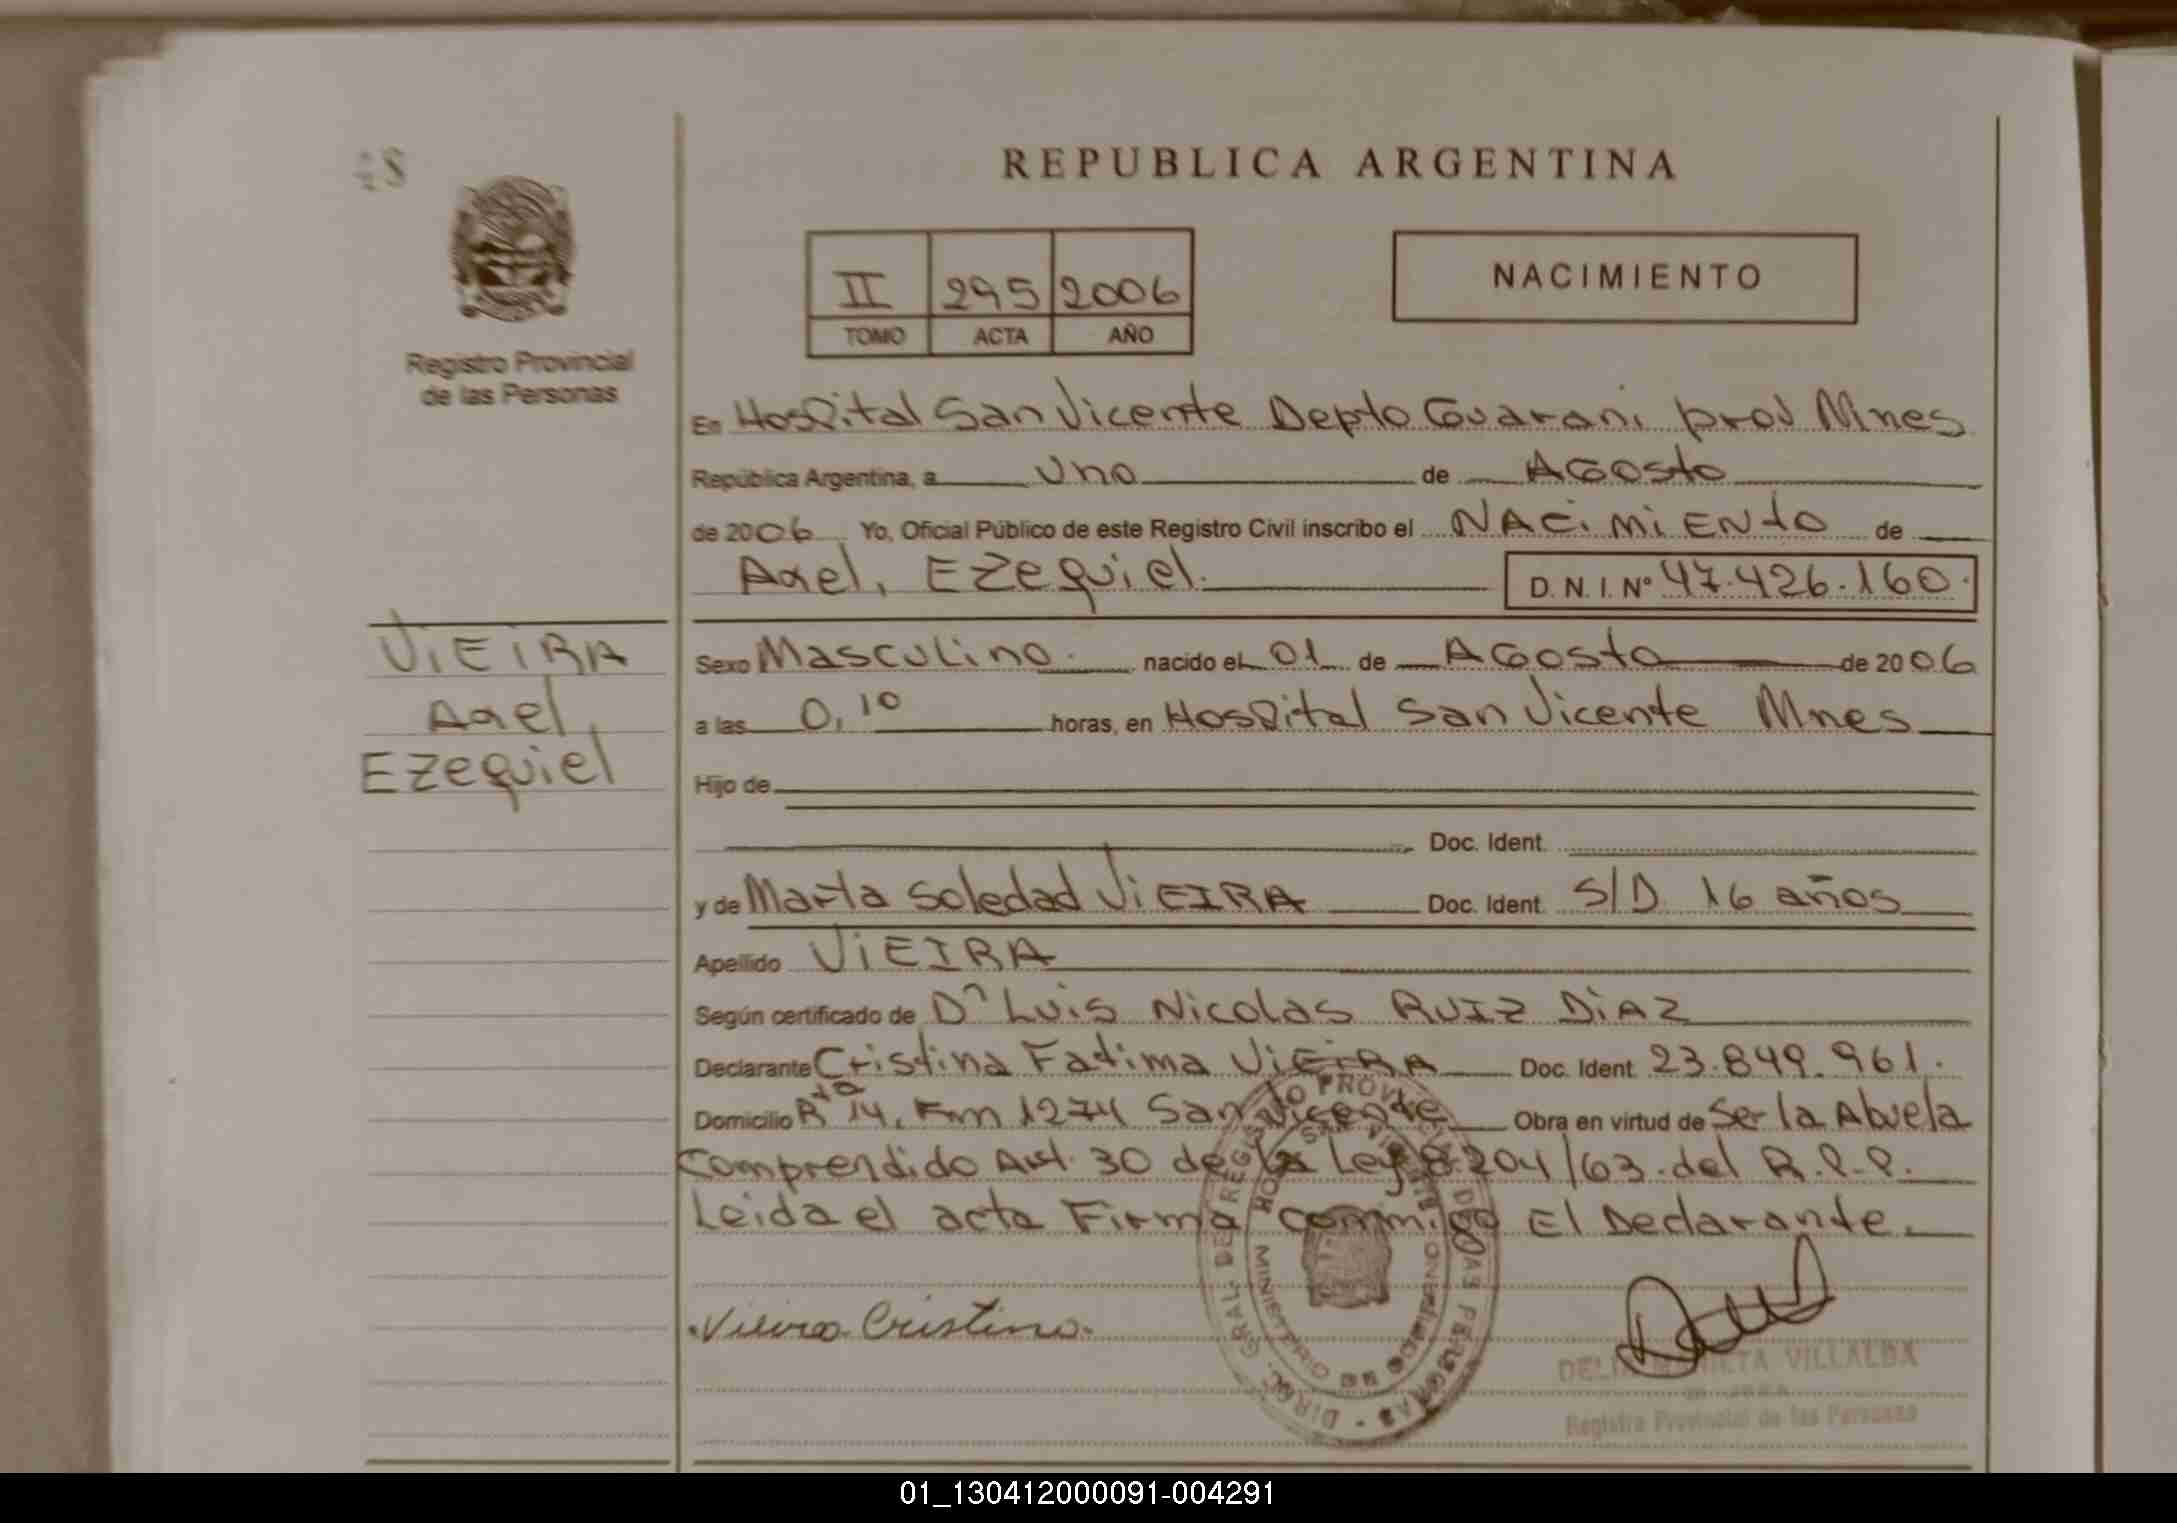 REPUBLICA ARGENTINA
II 295 2006
TOMO ACTA AÑO
NACIMIENTO
Registro Provincial
de las Personas
En Hospital San Vicente Depto Guarani prov Mnes
República Argentina, a uno de AGosto
de 2006 Yo, Oficial Público de este Registro Civil inscribo el NACiMiENto de
Axel, EZequiel.
D. N. I. Nº 47.426.160.
VIEIRA
Axel,
EZequiel
Sexo Masculino. nacido el 01 de AGosto de 2006
a las 0,10 horas, en Hospital San Vicente Mnes
Hijo de
Doc. Ident.
y de Marta Soledad VIEIRA Doc. Ident. S/D 16 años
Apellido VIEIRA
Según certificado de Dr Luis Nicolas RUIZ DIAZ
Declarante Cristina Fatima VIEIRA Doc. Ident. 23.849.961.
Domicilio Rta 14, Km 1274 San Vicente Obra en virtud de Ser la Abuela
Comprendido Art. 30 de la Ley 8.204/63 del R.P.P.
Leida el acta Firma commigo El Declarante.
Vieira Cristina.
VILLALBA
Registro Provincial de las Personas
01_130412000091-004291